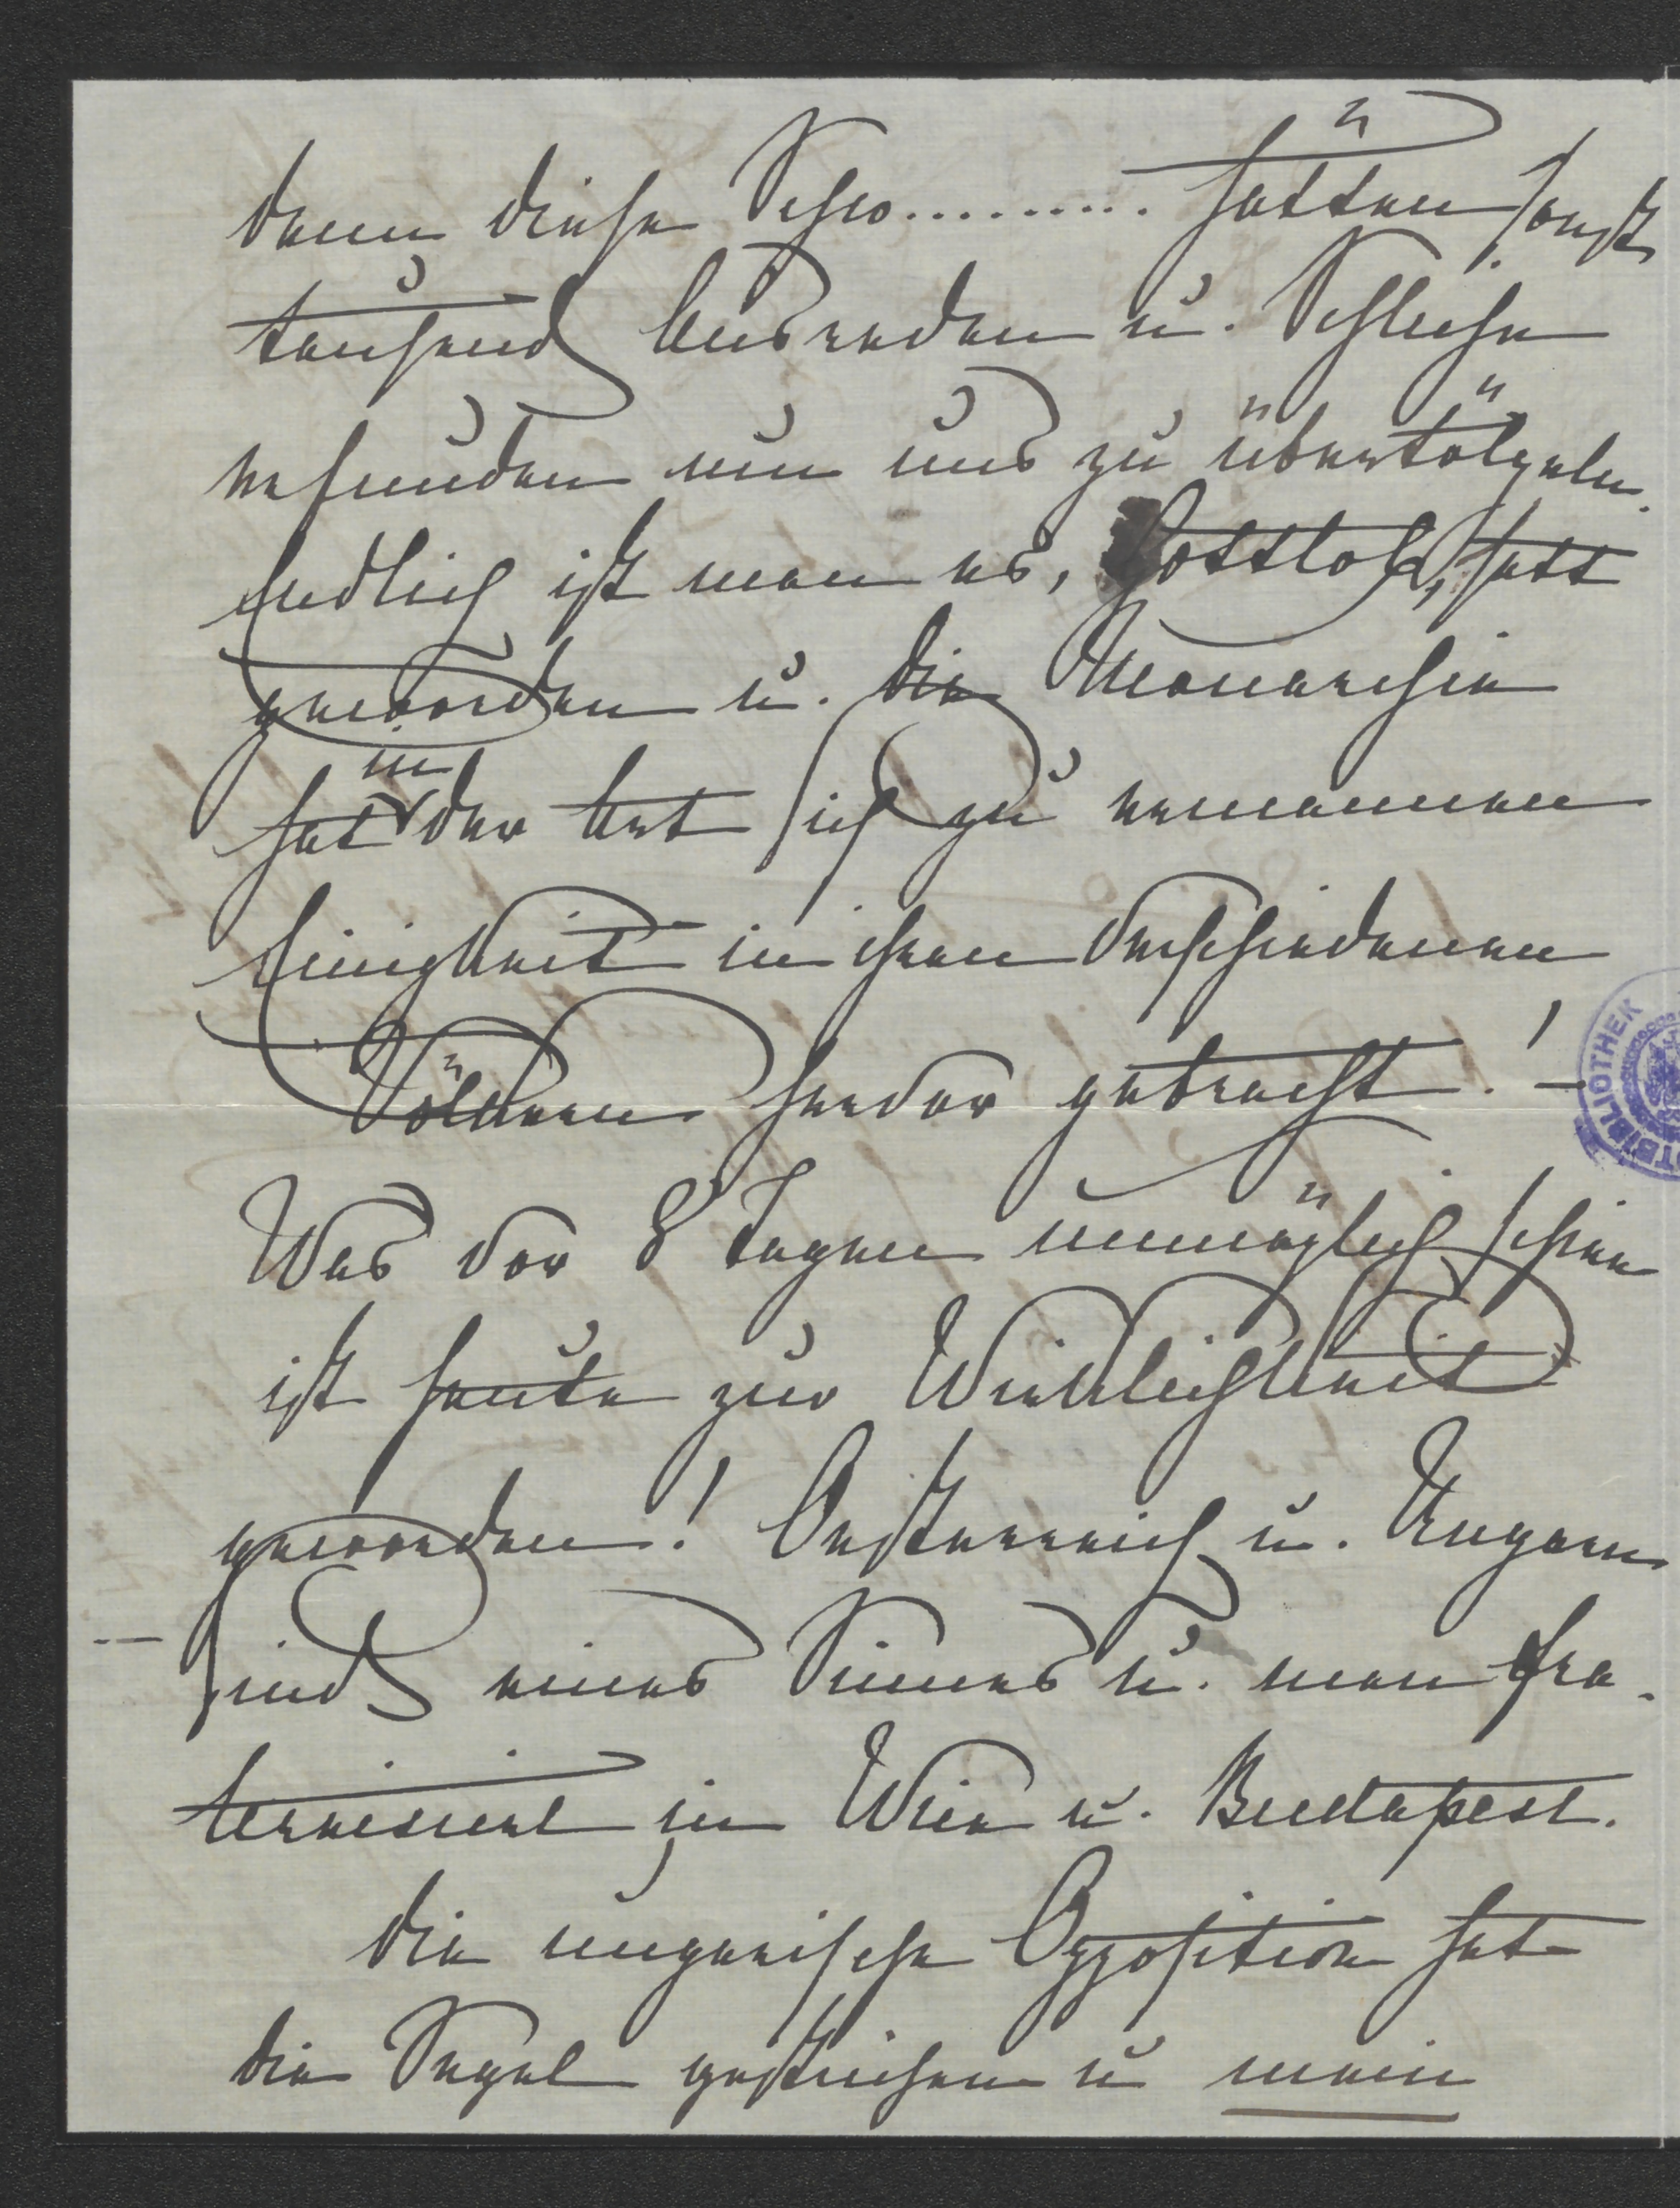 denn diese Schw.......... hätten sonst
tausend Ausreden u. Schliche
erfunden um uns zu übertölpeln.
Endlich ist man es, Gottlob, satt
geworden u. die Monarchie
hat in der Art sich zu ermannen
Einigkeit in ihren verschiedenen
Völkern hervor gebracht! –
Was vor 8 Tagen unmöglich schien
ist heute zur Wirklichkeit
geworden! Oesterreich u. Ungarn
sind eines Sinnes u. man fra-
ternisirt in Wien u. Budapest.
Die ungarische Opposition hat
die Segel gestrichen u mein
BIBLIOTHEK